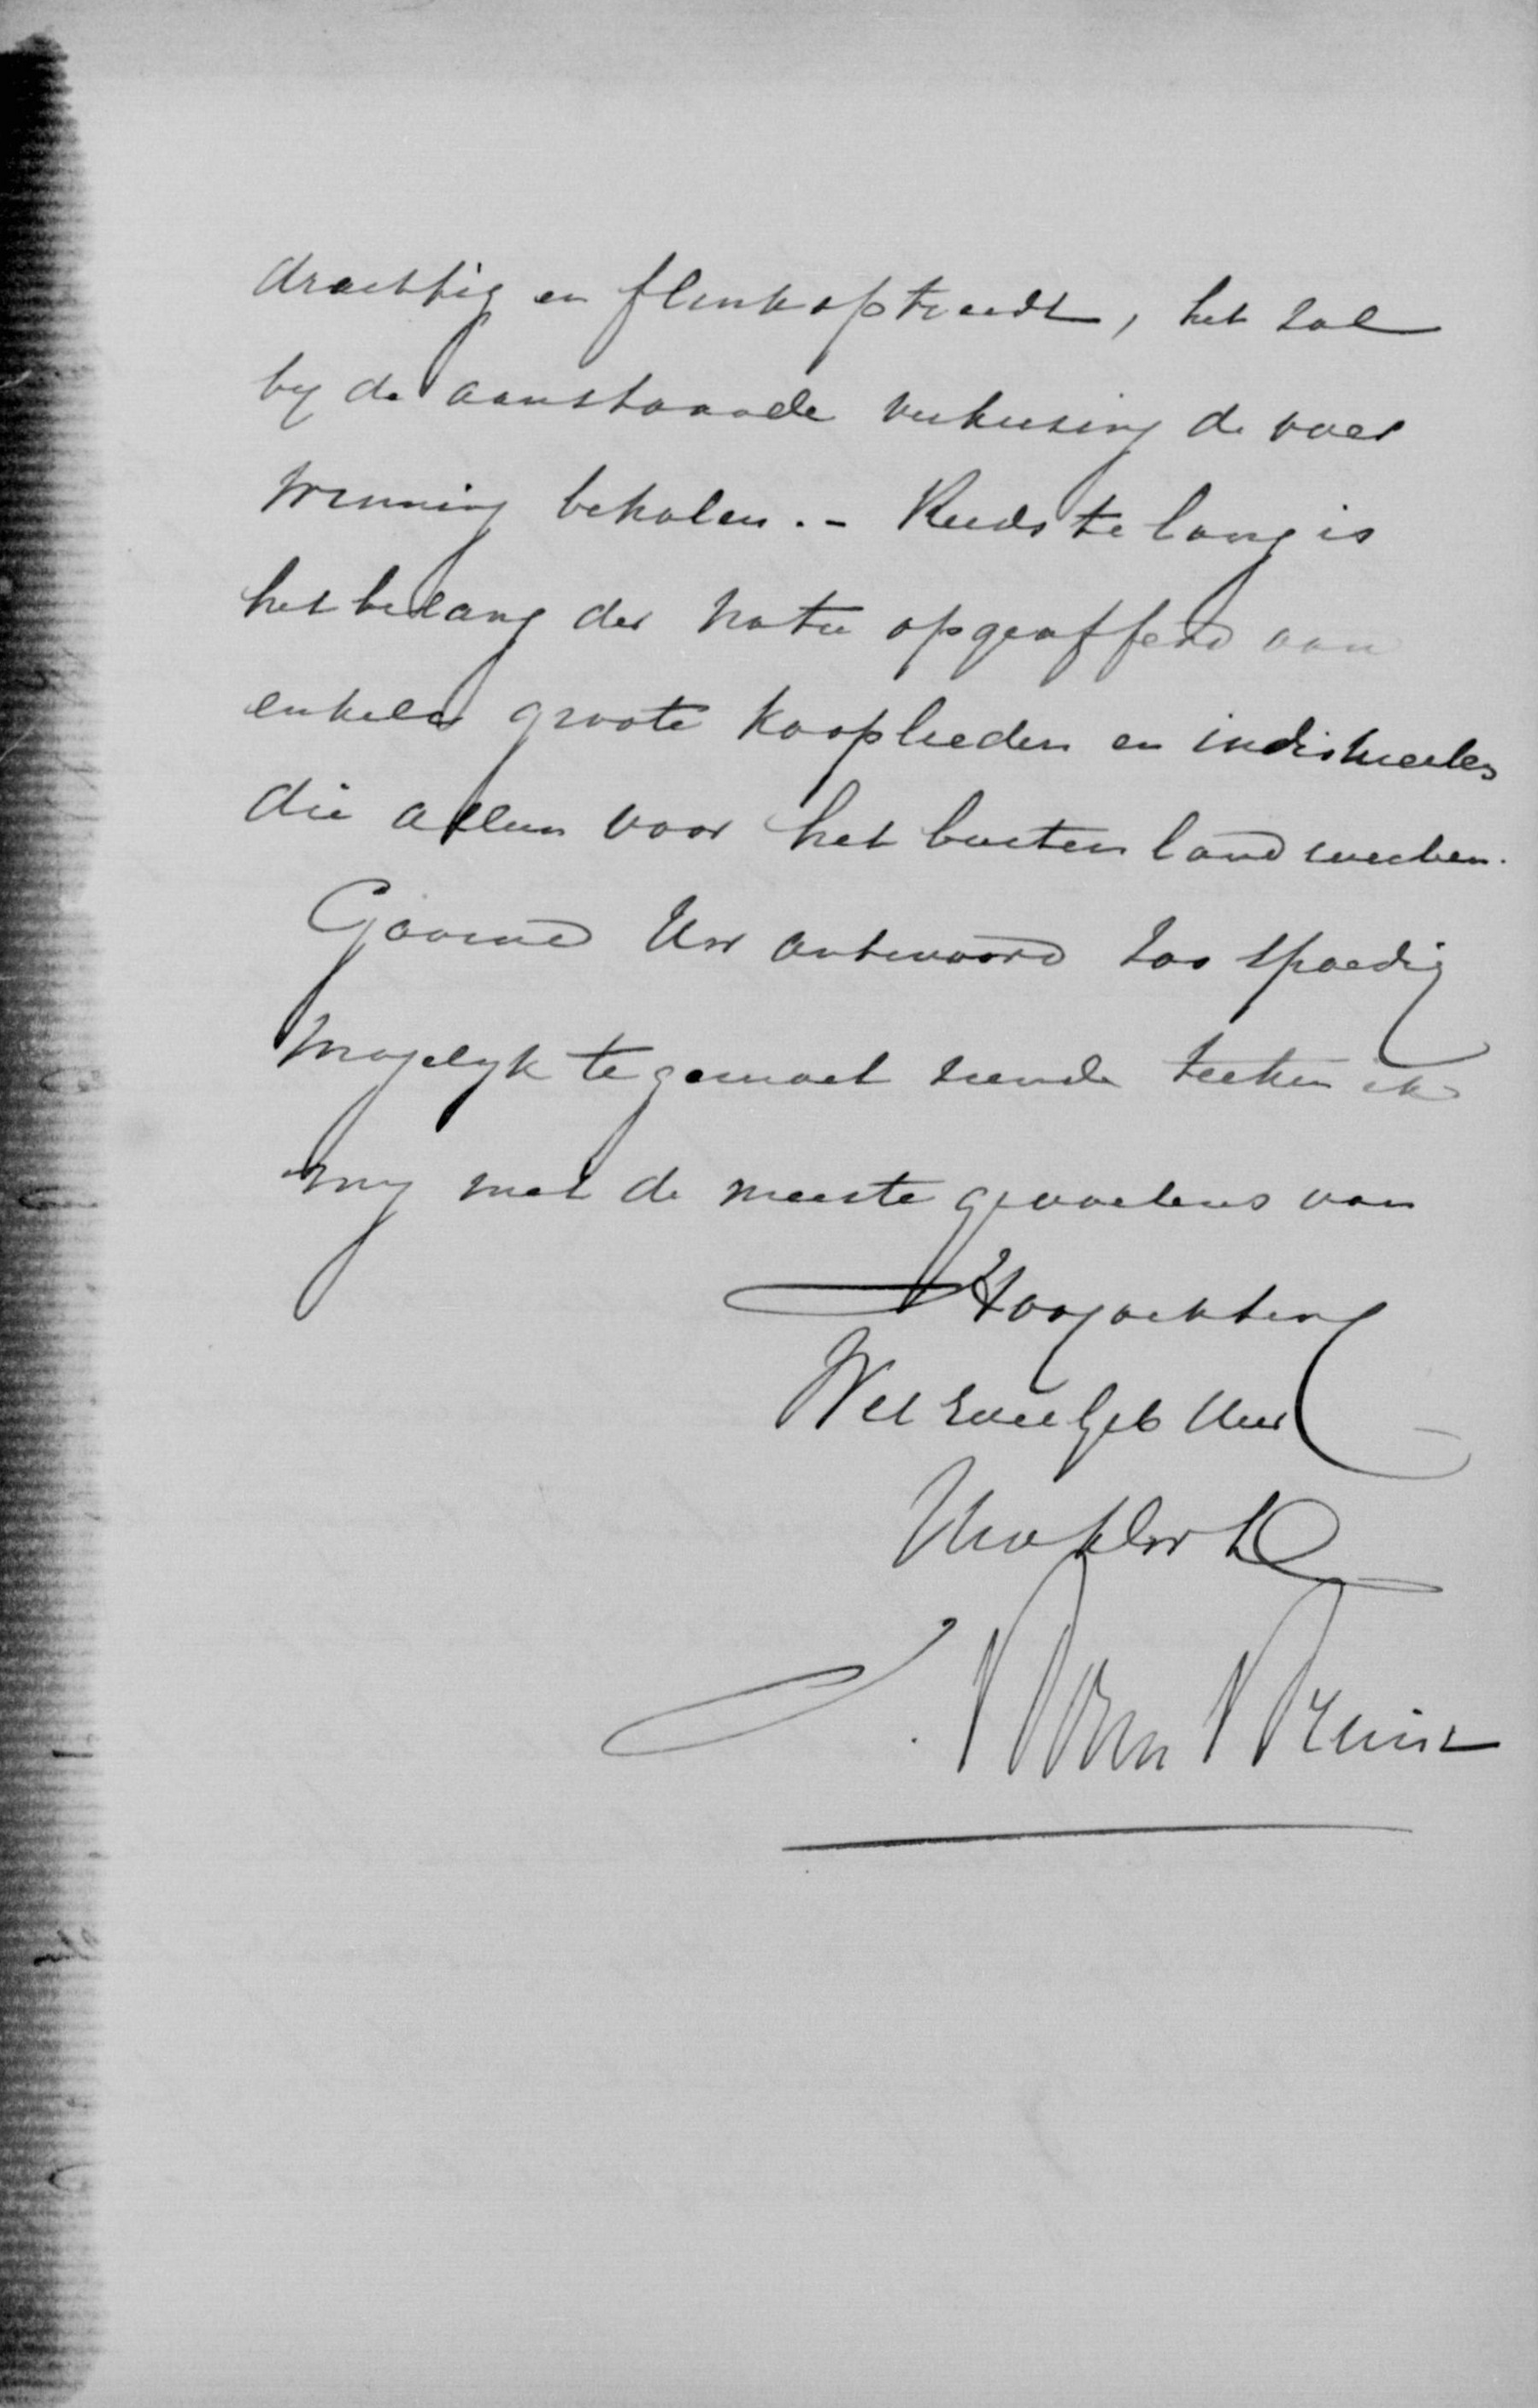 drachtig en flink optreedt, het zal
by de aanstaande verkiesing de over
winning behalen. - Reeds te lang is
het belang der natie opgeofferd aan
enkele groote kooplieden en industrieelen
die alleen voor het buiten land werken.
Gaarne Uw antwoord zoo spoedig
mogelyk te gemoet ziende teeken ik
my met de meeste gevoelens van
Hoogachting
Wel Edel Geb Heer